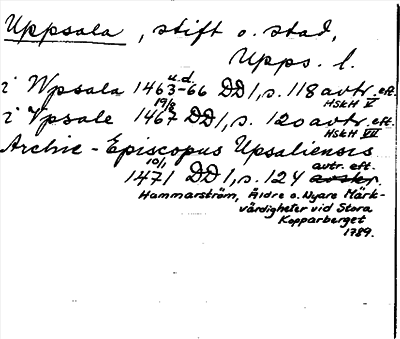 Uppsala, stift o. stad,
Upps. l.
u.d.
i Wpsala 1463-66 DD 1, s. 118 avtr. eft.
HSKH V
19/8
i Vpsale 1467 DD 1, s. 120 avtr. eft.
HSKH VII
Archie-Episcopus Upsaliensis
10/1 avtr. eft.
1471 DD 1, s. 124 avskr.
Hammarström, Äldre o. Nyare Märk-
värdigheter vid Stora
Kopparberget
1789.